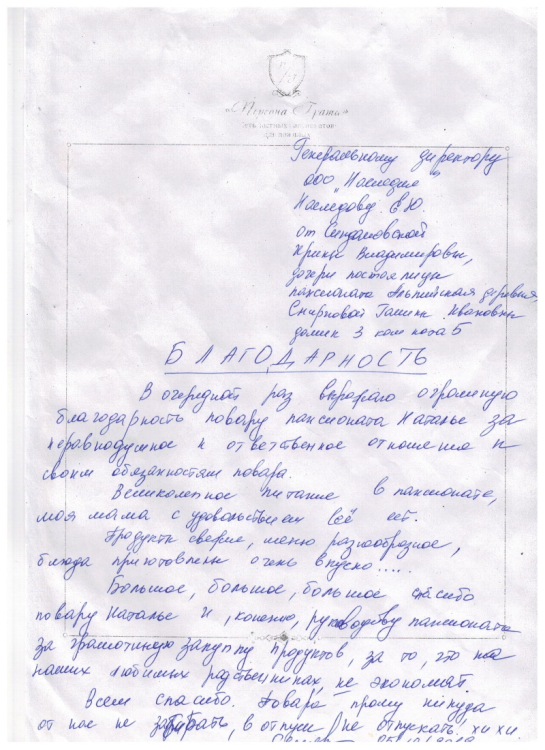 «Персона Грата»
Генеральному директору
ООО „Наследие"
Наследовой Е.Ю.
от
Ирины Владимировны,
дочери постоялицы
пансионата Альпийская деревня
Смирновой Галины Ивановны
домик 3 комната 5
БЛАГОДАРНОСТЬ
В очередной раз выражаю огромную
благодарность повару пансионата Наталье за
неравнодушное и ответственное отношение к
своим обязанностям повара.
Великолепное питание в пансионате,
моя мама с удовольствием всё ест.
Продукты свежие, меню разнообразное,
блюда приготовлены очень вкусно.....
Большое, большое, большое спасибо
повару Наталье и, конечно, руководству пансионата
за грамотную закупку продуктов, за то, что на
наших любимых родственниках не экономят.
Всем спасибо. Повара прошу никуда
от нас не забирать, в отпуск не отпускать, хи хи.